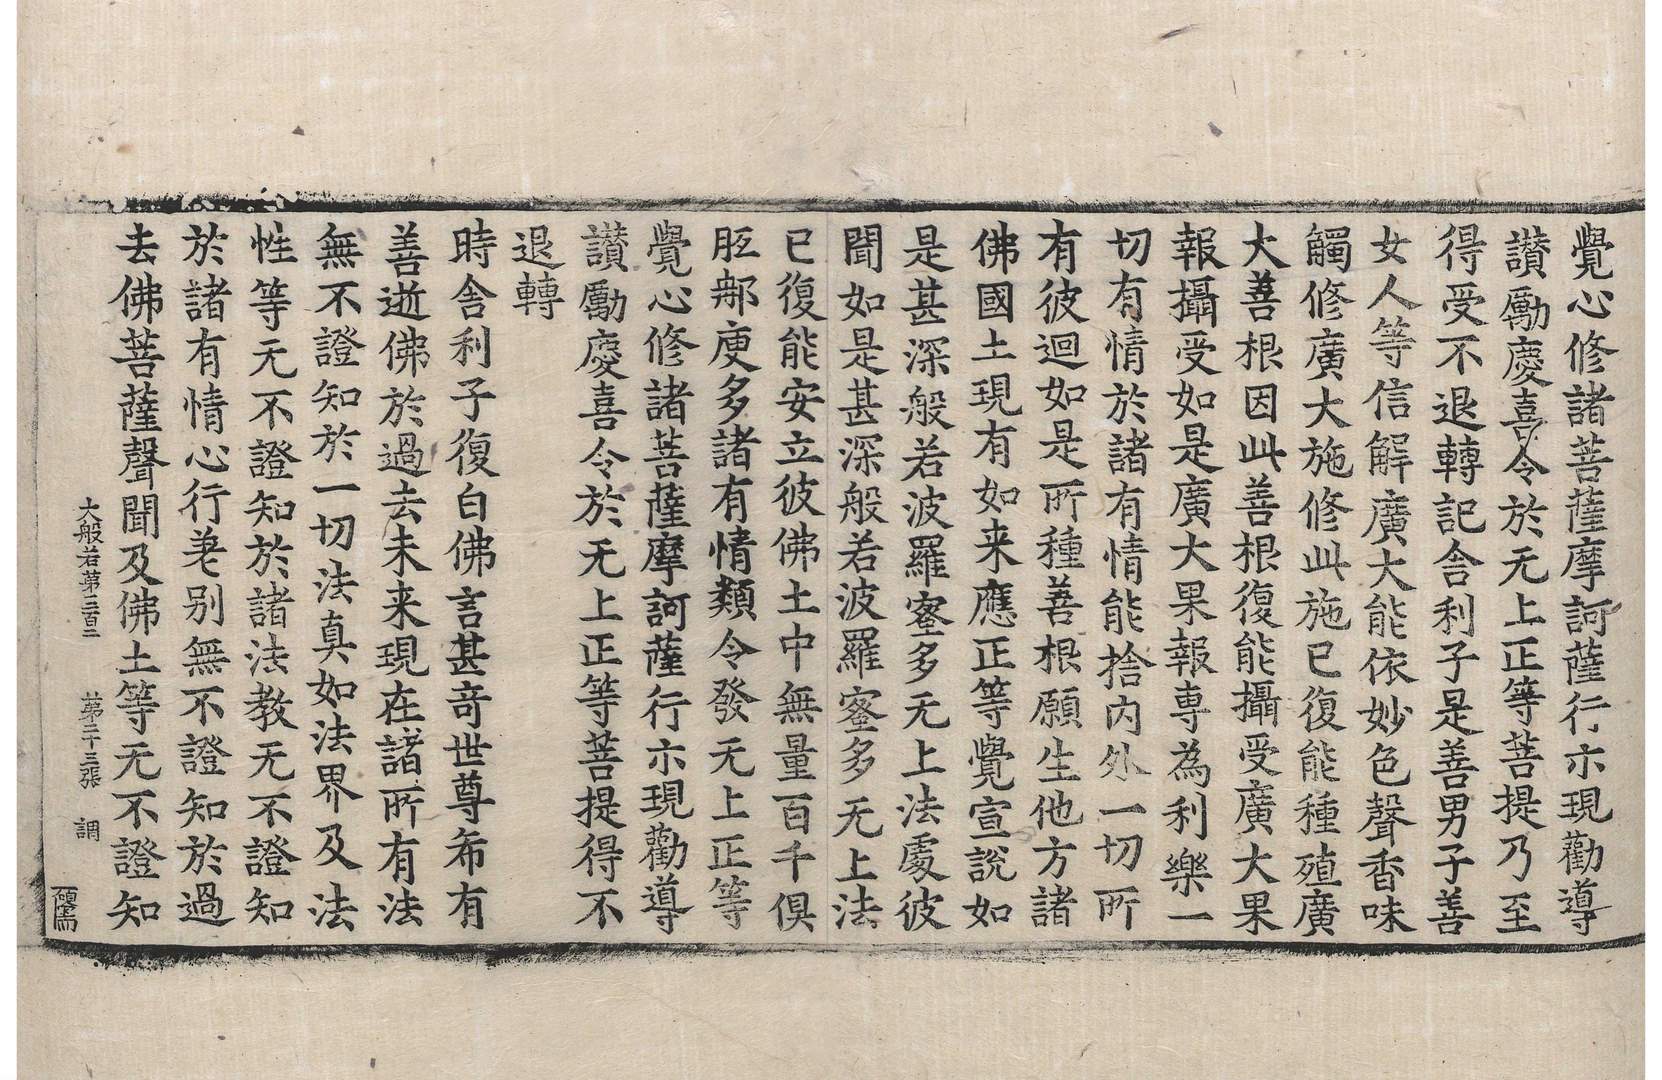 覺心修諸菩薩摩訶薩行示現勸導
讃勵慶喜令於无上正等菩提乃至
得受不退轉記舍利子是善男子善
女人等信解廣大能依妙色聲香味
觸修廣大施修此施已復能種殖廣
大善根因此善根復能攝受廣大果
報攝受如是廣大果報專為利樂一
切有情於諸有情能捨內外一切所
有彼迴如是所種善根願生他方諸
佛國土現有如来應正等覺宣說如
是甚深般若波羅蜜多无上法處彼
聞如是甚深般若波羅蜜多无上法
已復能安立彼佛土中無量百千俱
胝那庾多諸有情類令發无上正等
覺心修諸菩薩摩訶薩行示現勸導
讃勵慶喜令於无上正等菩提得不
退轉
時舍利子復白佛言甚奇世尊希有
善逝佛於過去未来現在諸所有法
無不證知於一切法真如法界及法
性等无不證知於諸法教无不證知
於諸有情心行差别無不證知於過
去佛菩薩聲聞及佛土等无不證知
大般若第三百二 第二十三張 調